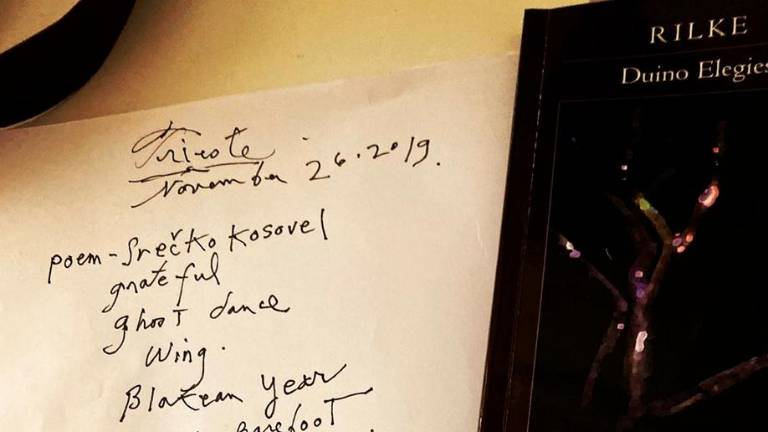 Trieste
November 26.2019.
poem-Srečko Kosovel
grateful
ghost dance
wing.
Blakean year
Barefoot
RILKE
Duino Elegies